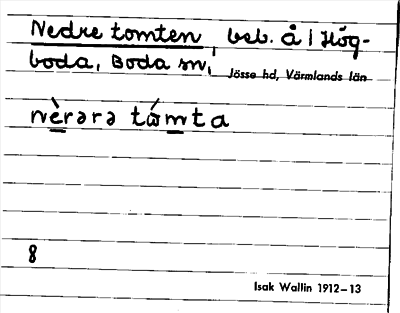 Nedre tomten, beb. å i Hög-
boda, Boda sn, Jösse hd, Värmlands län
nèrərə tómta
8
Isak Wallin 1912–13